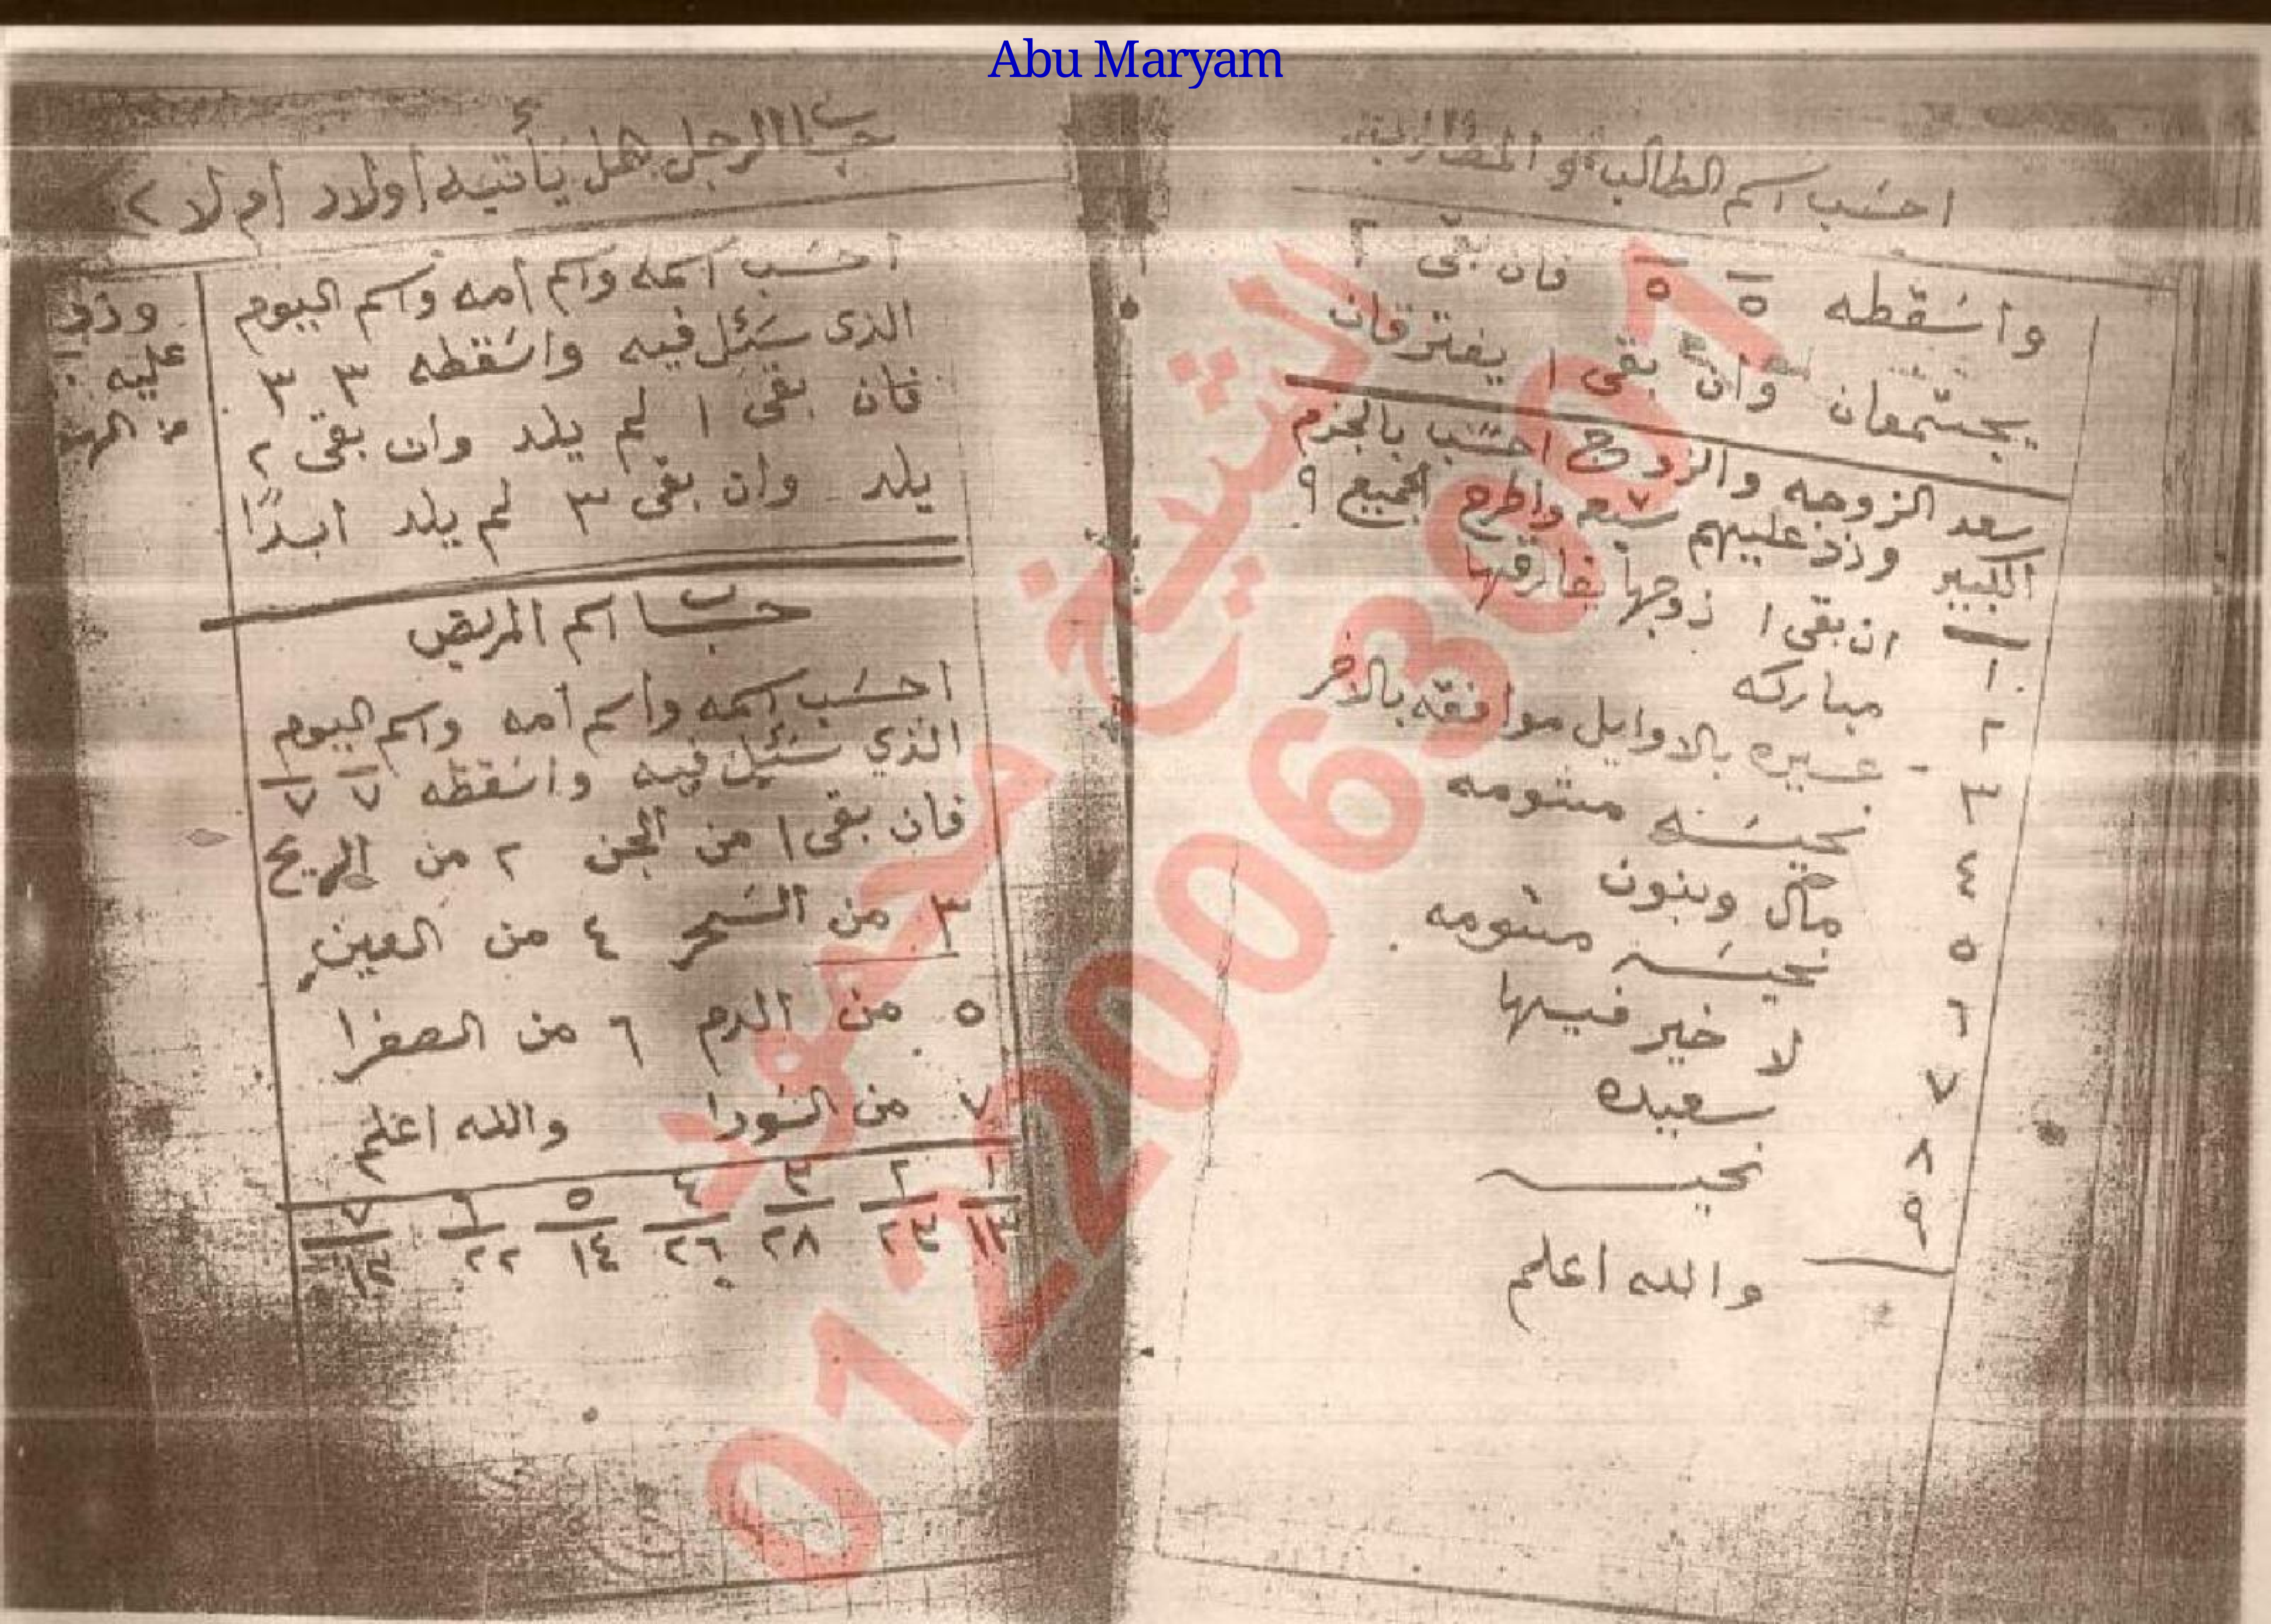 Abu Maryam
احسب اسم الطالب و
واسقطه ٥ ٥ فان بقى ٢
يجتمعان وان بقى ١ يفترقان
سعد الزوجه والزوج احسب بالجزم
الكبير وزد عليهم سبعه ٧ واطرح الجميع ٩
١ ان بقى ١ زوجها يفارقها
٢ مباركه
٣ عسيره بالاوايل موافقه بالاخر
٤ نحيسه مشومه
٥ مال وبنون
٦ نحيسه مشومه
٧ لا خير فيها
٨ سعيده
٩ نحيسه
والله اعلم
حساب الرجل هل يأتيه أولاد أم لا ؟
احسب اسمه واسم أمه واسم اليوم
الذى سئل فيه واسقطه ٣ ٣
فان بقى ١ لم يلد وان بقى ٢
يلد وان بقى ٣ لم يلد ابدًا
وزد
عليه
حساب اسم المريض
احسب اسمه واسم أمه واسم اليوم
الذي سئل فيه واسقطه ٧ ٧
فان بقى ١ من الجن ٢ من الريح
٣ من السحر ٤ من العين
٥ من الدم ٦ من الصفرا
٧ من السودا والله اعلم
١ ٢ ٣ ٤ ٥ ٦ ٧
١٣ ٢٣ ٢٨ ٢٦ ١٤ ٢٢
الشيخ محمود